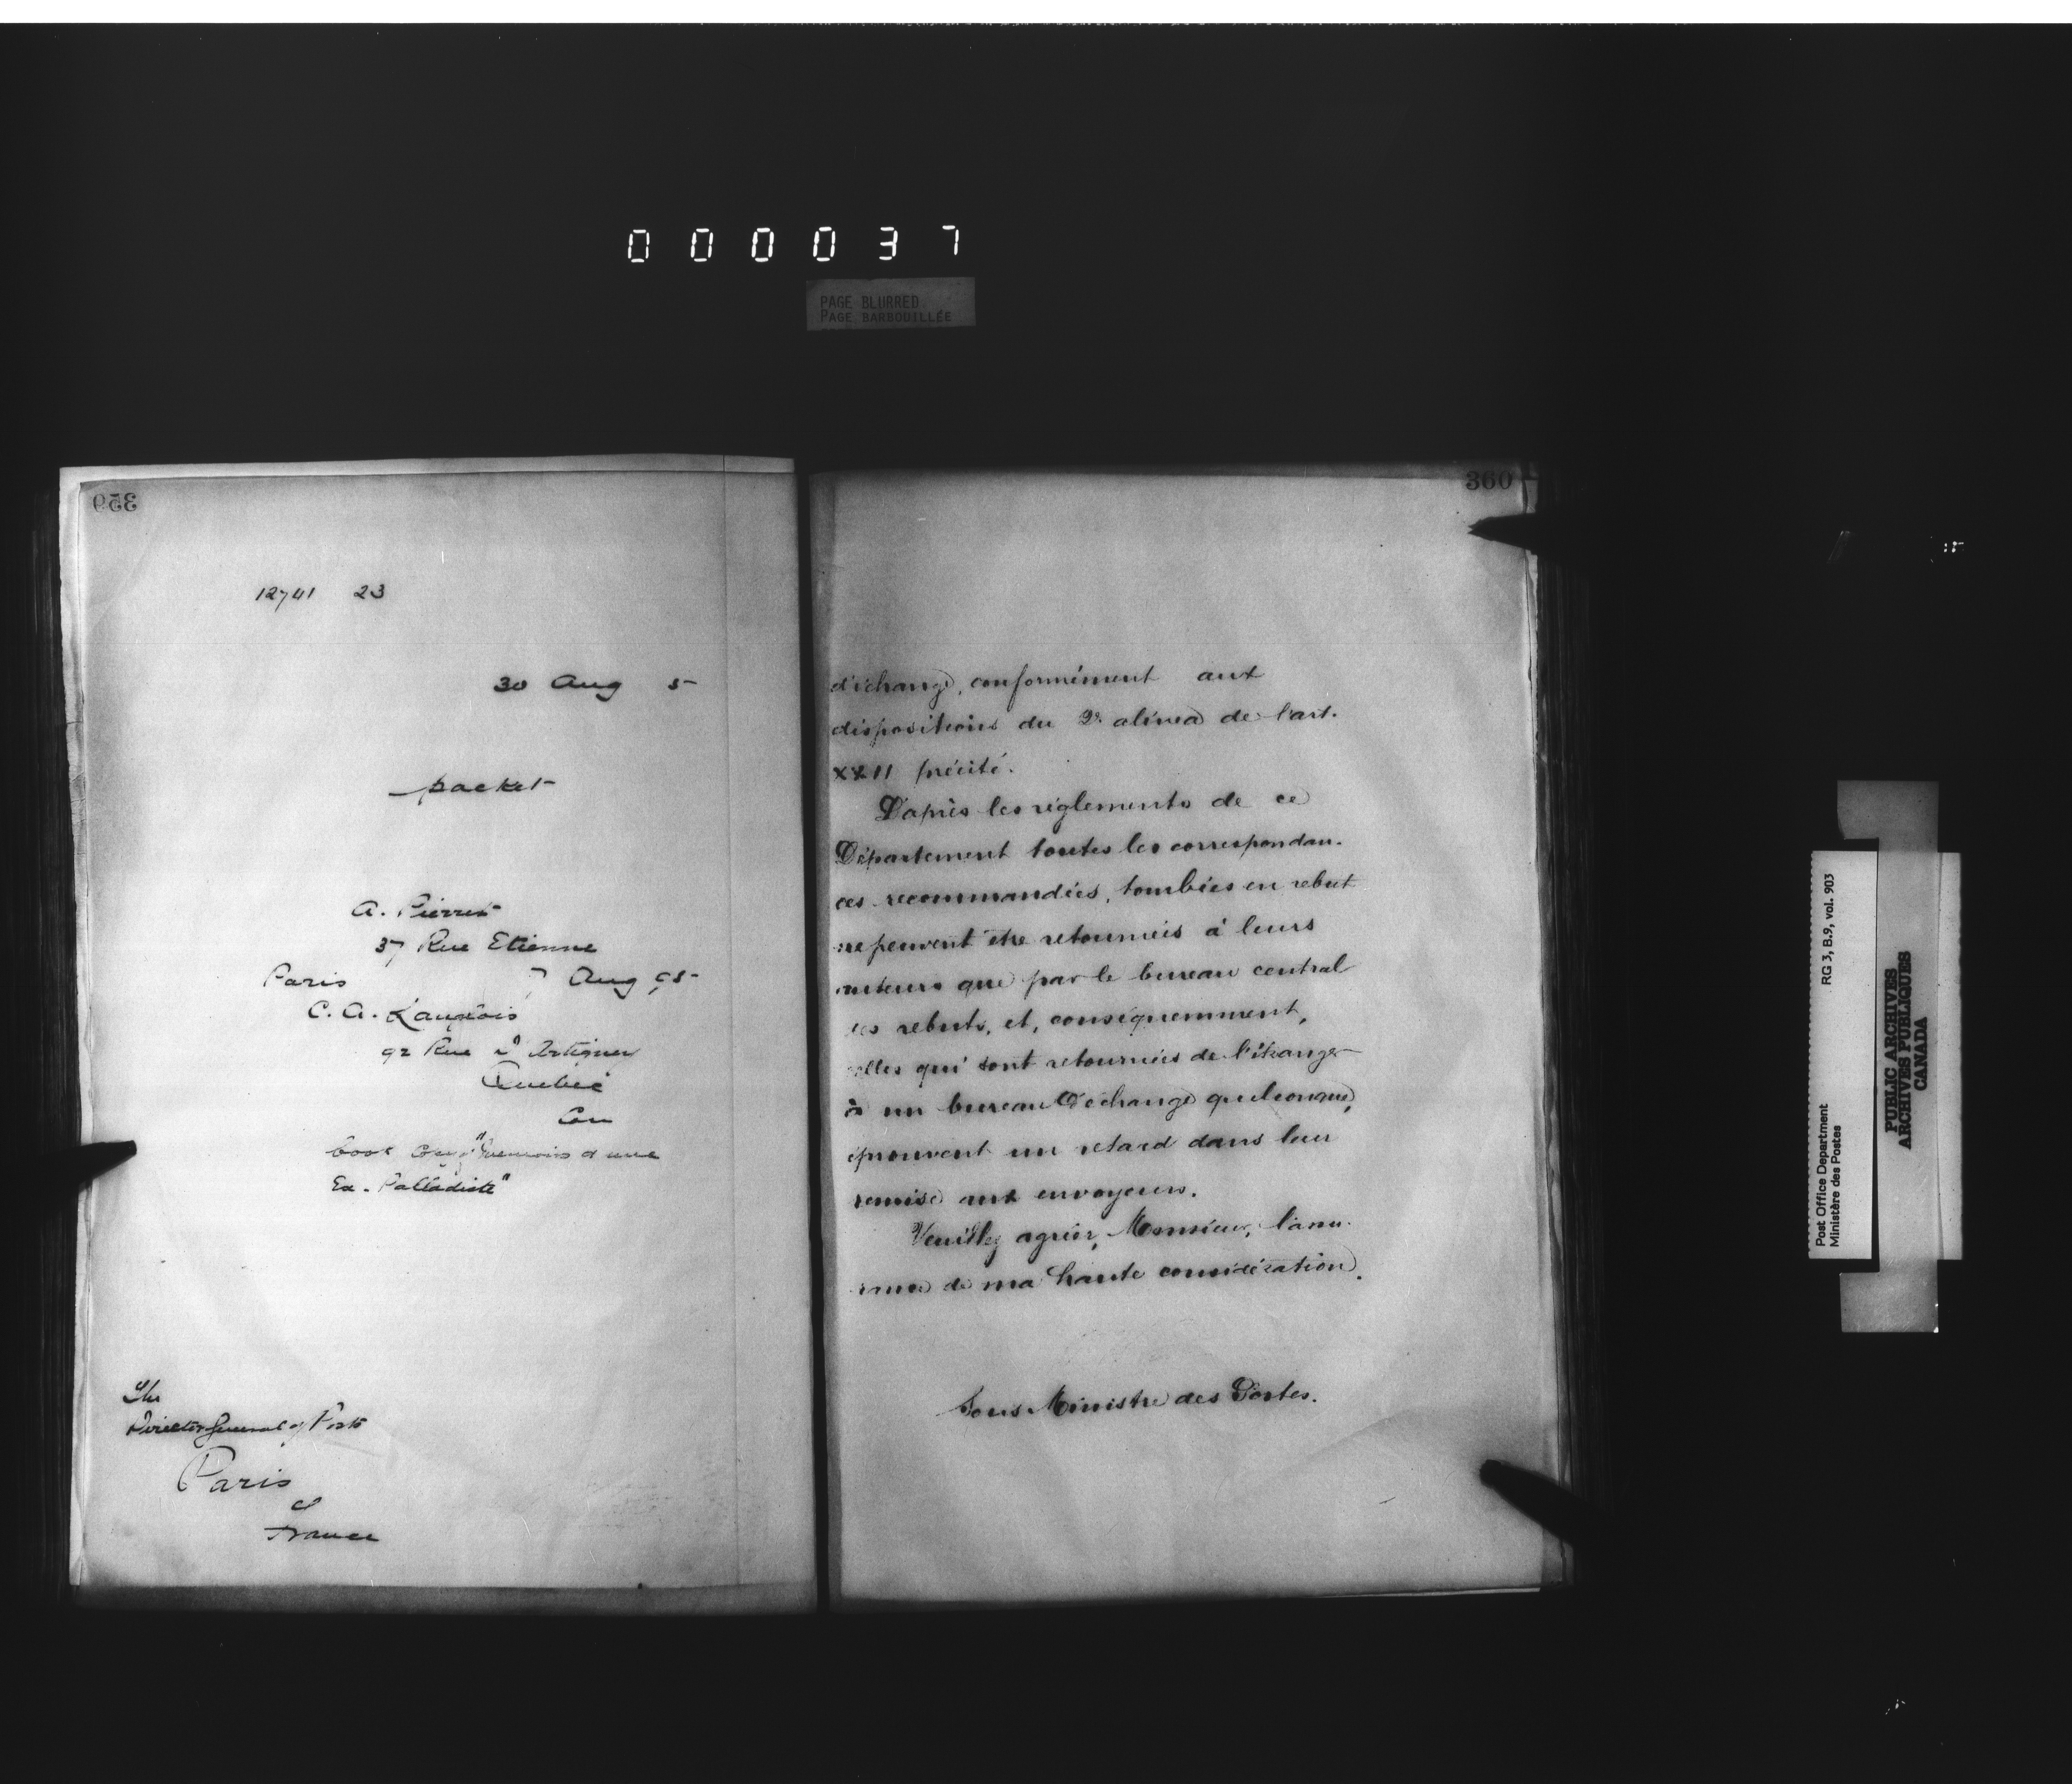 000037
PAGE BLURRED
PAGE BARBOUILLÉE
359
12741 23
30 Aug 5
packet
A. Pierret
37 Rue Etienne
Paris 7 Aug 95
C. A. Langlois
92 Rue d'Artigny
Quebec
Can
book "Memoirs d'une
Ex-Palladiste"
The
Director General of Posts
Paris
France
360
d'échange, conformément aux
dispositions du 2e alinea de l'art.
XXII précité.
D'après les règlements de ce
Département toutes les correspondan-
ces recommandées, tombées en rebut
ne peuvent être retournées à leurs
auteurs que par le bureau central
des rebuts, et, conséquemment,
celles qui sont retournées de l'étranger
à un bureau d'échange quelconque,
éprouvent un retard dans leur
remise aux envoyeurs.
Veuillez agréer, Monsieur, l'assu-
rance de ma haute considération.
Sous Ministre des Postes.
Post Office Department
Ministère des Postes
RG 3, B.9, vol. 903
PUBLIC ARCHIVES
ARCHIVES PUBLIQUES
CANADA